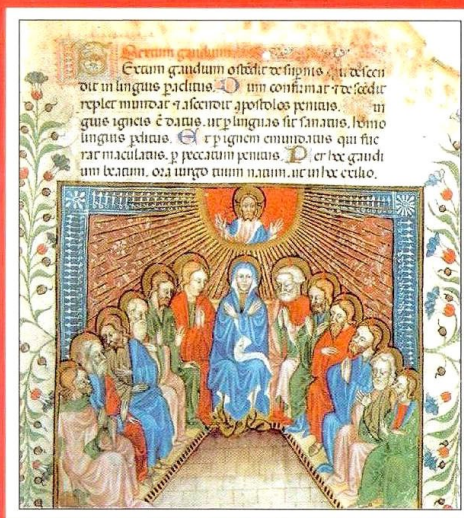 Sextum gaudium
Extum gaudium ostēdit de supnis qui descen
dit in linguis paclitus. Dum confirmat ⁊ descēdit
replet mundat ⁊ ascendit apostolos penitus. in
guis igneis ē datus. ut p linguas sit sanatus. homo
linguis pditus. Et p ignem emundatus qui fue
rat maculatus. p peccatum penitus. Per hoc gaudi
um beatum. ora uirgo tuum natum. ut in hoc exilio.